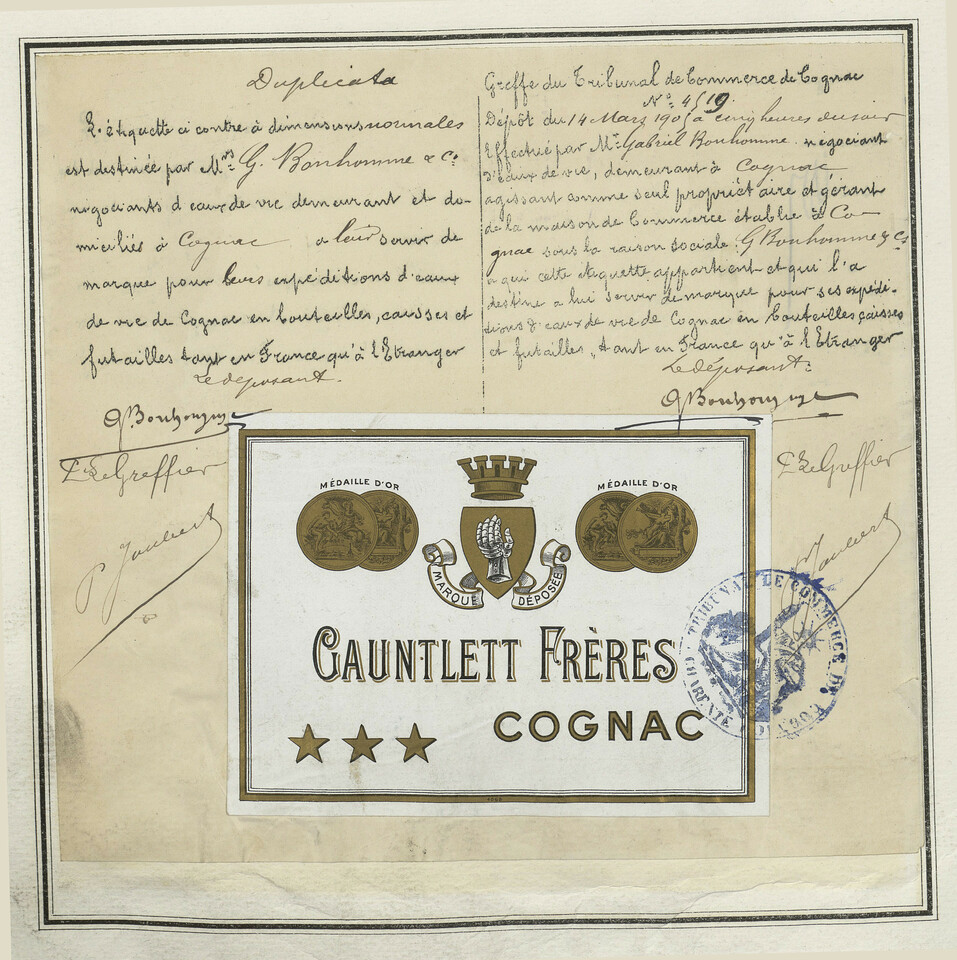 Duplicata
L'étiquette ci contre à dimensions normales
est destinée par Mrs G. Bonhomme & Co
négociants d'eaux de vie demeurant et do-
miciliés à Cognac a leur servir de
marque pour leurs expéditions d'eaux
de vie de Cognac en bouteilles, caisses et
futailles tant en France qu'à l'Etranger
Le déposant.
G. Bonhomme
Pr Le Greffier
P. Joubert
Greffe du Tribunal de Commerce de Cognac
No 4519
Dépôt du 14 Mars 1905 à cinq heures du soir
Effectué par Mr Gabriel Bonhomme négociant
d'eaux de vie, demeurant à Cognac
agissant comme seul propriétaire et gérant
de la maison de Commerce établie à Co-
gnac sous la raison sociale G Bonhomme & Co
a qui cette étiquette appartient et qui l'a
destine a lui servir de marque pour ses expédi-
tions d'eaux de vie de Cognac en bouteilles caisses
et futailles, tant en France qu'à l'Etranger
Le déposant:
G. Bonhomme
Pr Le Greffier
P. Joubert
MÉDAILLE D'OR
MÉDAILLE D'OR
MARQUE DÉPOSÉE
GAUNTLETT FRÈRES
COGNAC
TRIBUNAL DE COMMERCE DE
CHARENTE